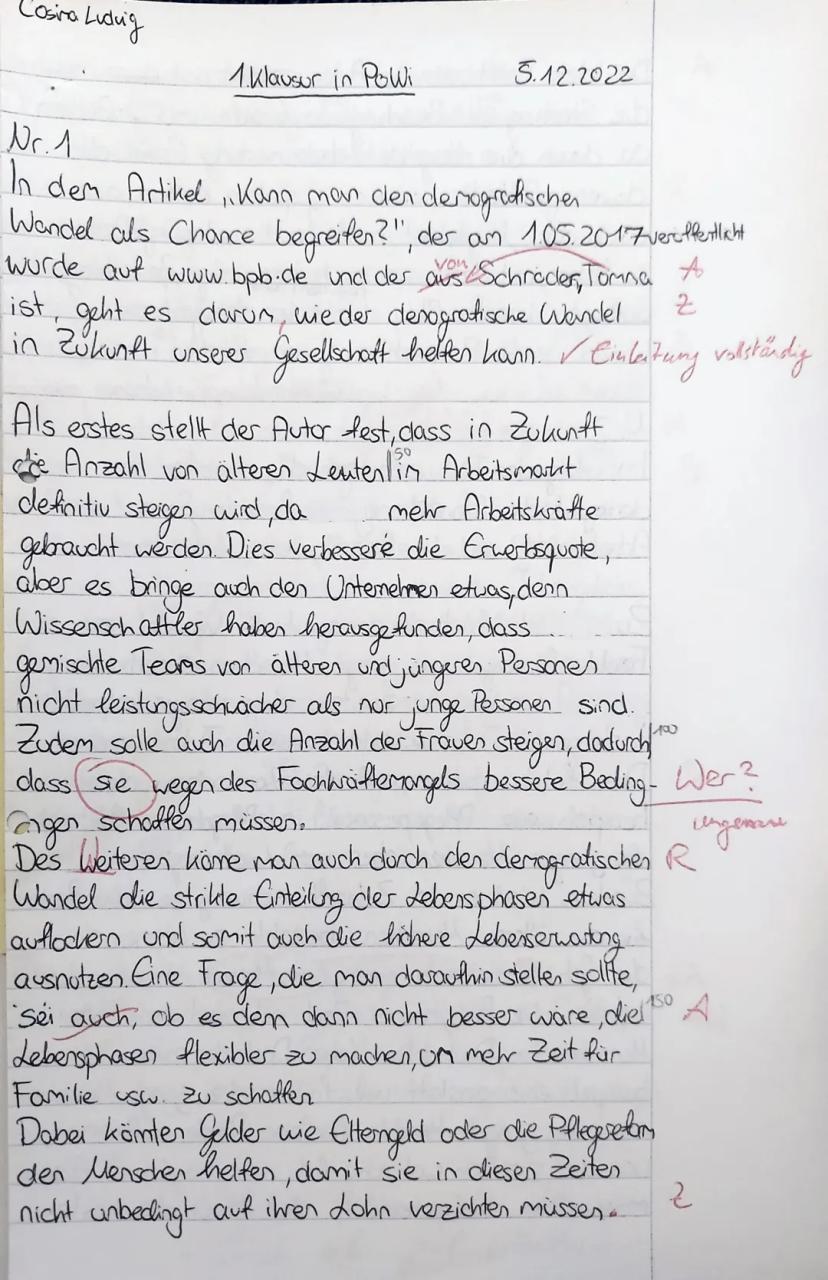 Cosima Ludwig
1. Klausur in PoWi 5.12.2022
Nr. 1
In dem Artikel „Kann man den demografischen
Wandel als Chance begreifen?", der am 1.05.2017 veröffentlicht
wurde auf www.bpb.de und der aus von Schröder, Tomna A
ist, geht es darum, wie der demografische Wandel Z
in Zukunft unserer Gesellschaft helfen kann. ✓ Einleitung vollständig
Als erstes stellt der Autor fest, dass in Zukunft
die Anzahl von älteren Leuten | 50 im Arbeitsmarkt
definitiv steigen wird, da mehr Arbeitskräfte
gebraucht werden. Dies verbessere die Erwerbsquote,
aber es bringe auch den Unternehmen etwas, denn
Wissenschaftler haben herausgefunden, dass
gemischte Teams von älteren und jüngeren Personen
nicht leistungsschwächer als nur junge Personen sind.
Zudem solle auch die Anzahl der Frauen steigen, dadurch | 100
dass sie wegen des Fachkräftemangels bessere Beding- Wer?
ungen schaffen müssen. ungenau
Des Weiteren käme man auch durch den demografischen R
Wandel die strikte Einteilung der Lebensphasen etwas
auflockern und somit auch die höhere Lebenserwartung
ausnutzen. Eine Frage, die man daraufhin stellen sollte,
sei auch, ob es dem dann nicht besser wäre, die | 150 A
Lebensphasen flexibler zu machen, um mehr Zeit für
Familie usw. zu schaffen
Dabei könnten Gelder wie Elterngeld oder die Pflegereform
den Menschen helfen, damit sie in diesen Zeiten
nicht unbedingt auf ihren Lohn verzichten müssen. Z